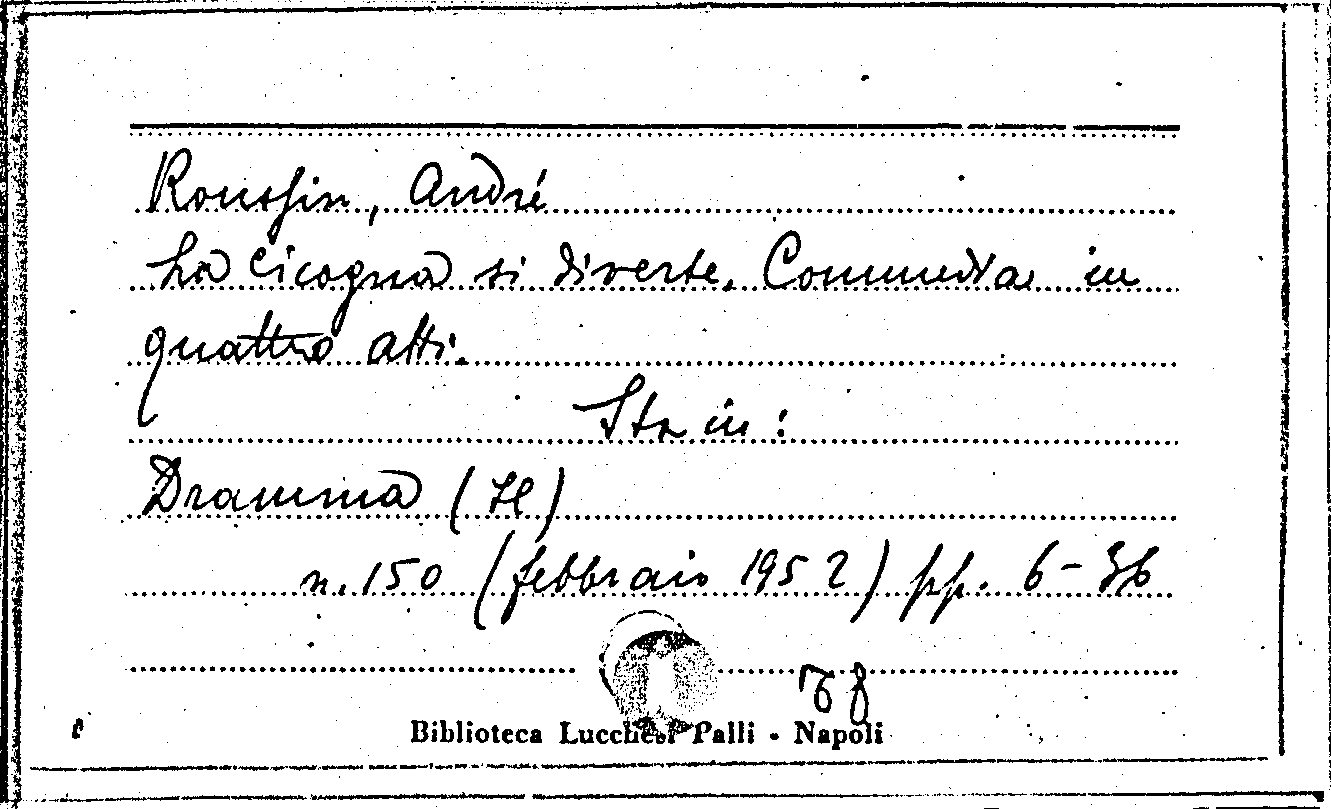 Roussin, André
La cicogna si diverte. Commedia in
quattro atti.
Sta in:
Dramma (Il)
n. 150 (febbraio 1952) pp. 6-36
Biblioteca Lucchesi Palli - Napoli